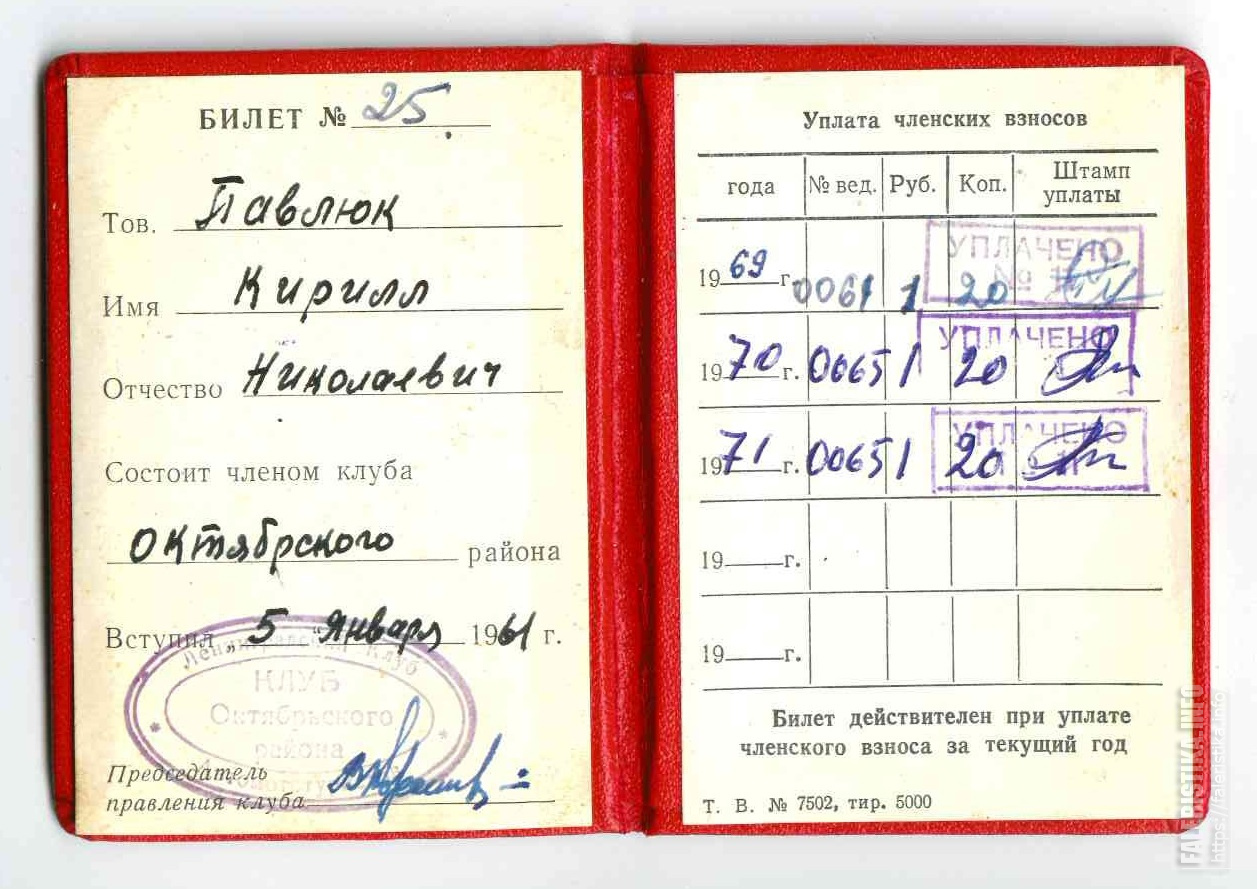 БИЛЕТ № 25
Тов. Павлюк
Имя Кирилл
Отчество Николаевич
Состоит членом клуба
Октябрского района
Вступил „5 "Января 1961 г.
Ленинградский Клуб
КЛУБ
Октябрьского
района
Председатель
правления клуба
Уплата членских взносов
года № вед. Руб. Коп. Штамп уплаты
УПЛАЧЕНО
1969 г. 0061 1 20
УПЛАЧЕНО
1970 г. 0065 1 20
УПЛАЧЕНО
1971 г. 0065 1 20
19 г.
19 г.
Билет действителен при уплате
членского взноса за текущий год
Т. В. № 7502, тир. 5000
FALERISTIKA.INFO
https://faleristika.info